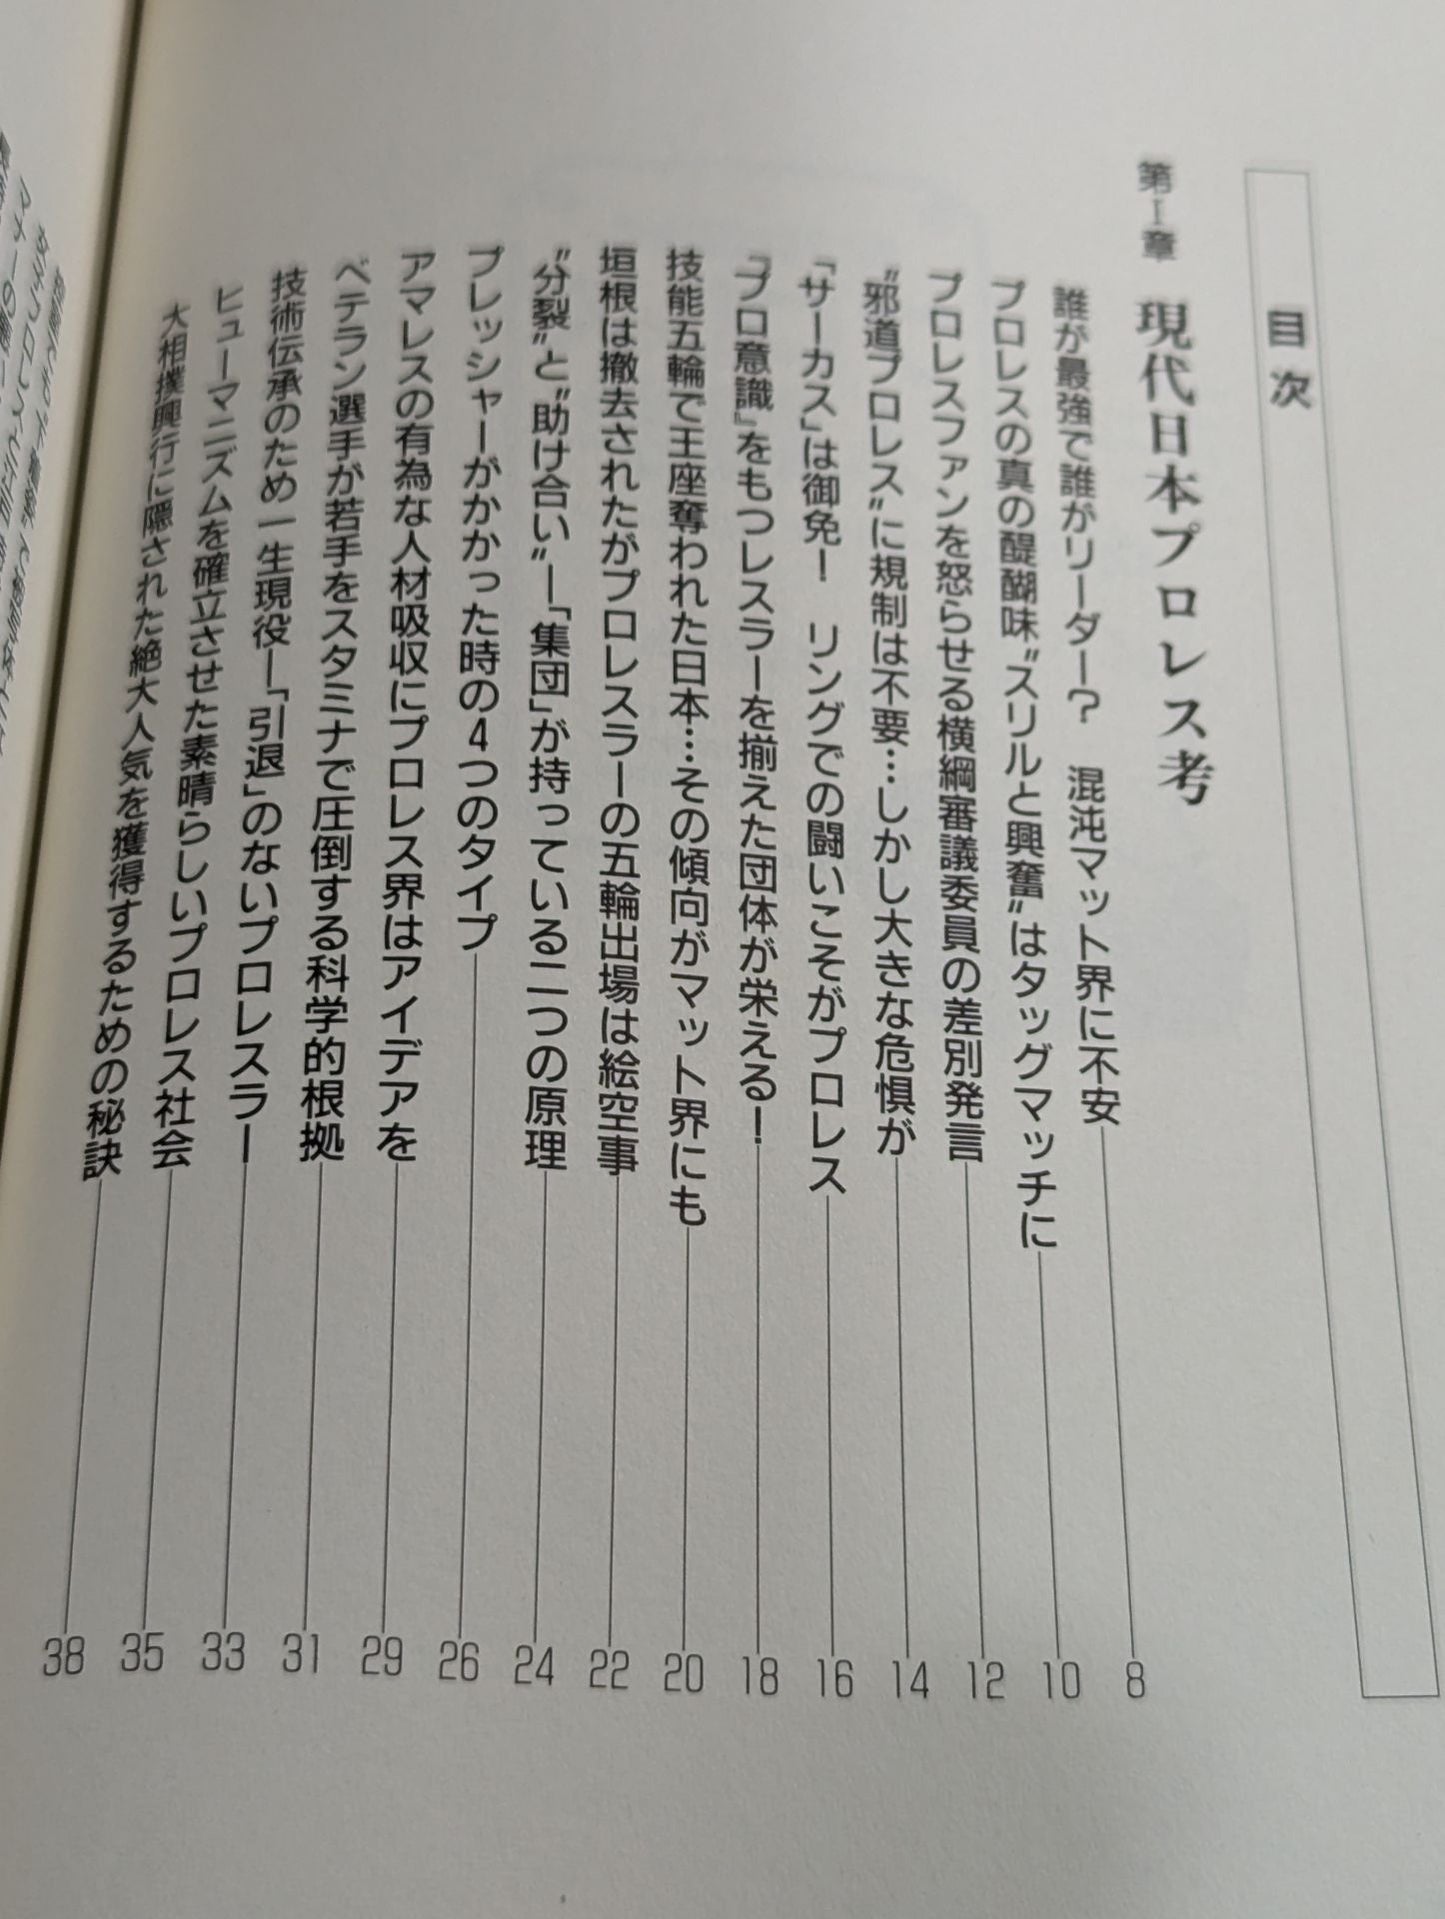 目次
第Ⅰ章 現代日本プロレス考
誰が最強で誰がリーダー? 混沌マット界に不安 8
プロレスの真の醍醐味〝スリルと興奮〟はタッグマッチに 10
プロレスファンを怒らせる横綱審議委員の差別発言 12
〝邪道プロレス〟に規制は不要…しかし大きな危惧が 14
「サーカス」は御免! リングでの闘いこそがプロレス 16
『プロ意識』をもつレスラーを揃えた団体が栄える! 18
技能五輪で王座奪われた日本…その傾向がマット界にも 20
垣根は撤去されたがプロレスラーの五輪出場は絵空事 22
〝分裂〟と〝助け合い〟―「集団」が持っている二つの原理 24
プレッシャーがかかった時の4つのタイプ 26
アマレスの有為な人材吸収にプロレス界はアイデアを 29
ベテラン選手が若手をスタミナで圧倒する科学的根拠 31
技術伝承のため一生現役―「引退」のないプロレスラー 33
ヒューマニズムを確立させた素晴らしいプロレス社会 35
大相撲興行に隠された絶大人気を獲得するための秘訣 38